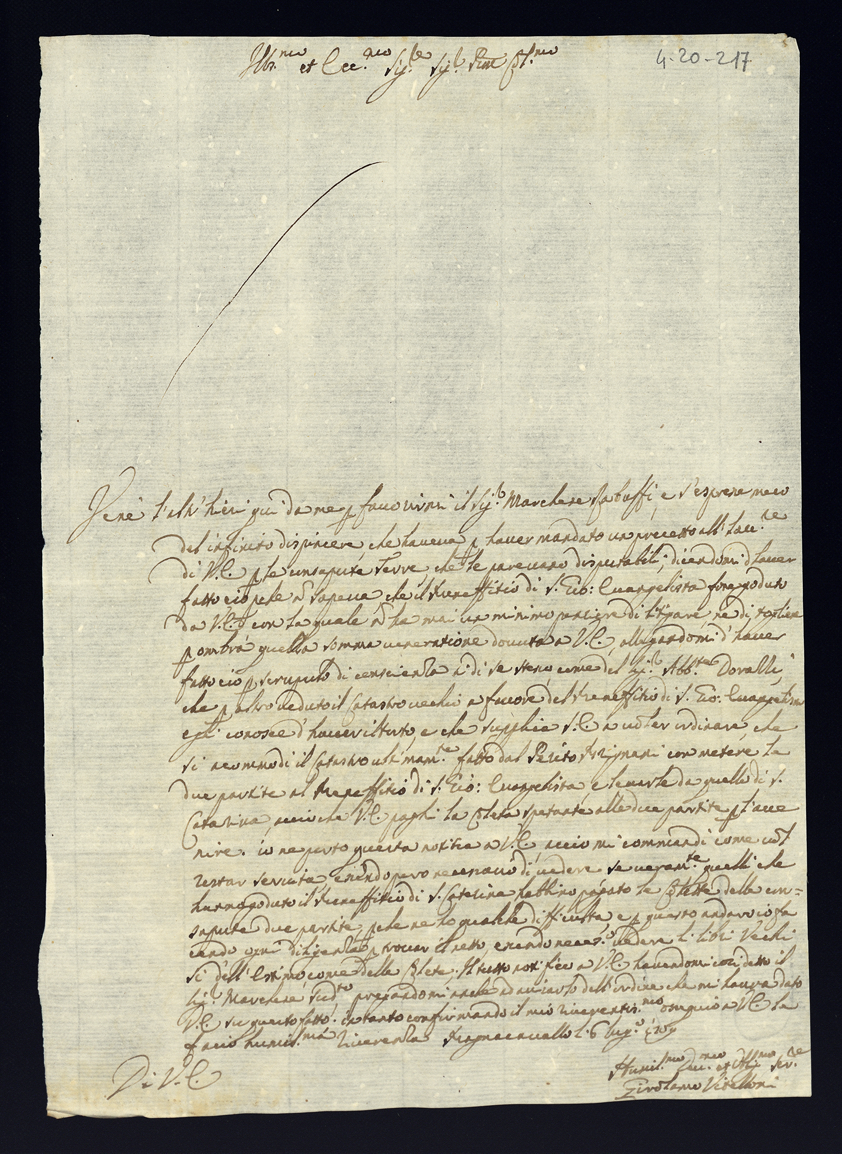 Ill.mo et Ecc.mo Sig.re Sig.r Pron Col.mo
4-20-217
Venè l'altr'hieri qui da me p favorirmi il Sig.r Marchese e s'espresse meco
del infinito dispiacere, che haveva p haver mandato un precetto all'
di V.E. p le consapute Terre che le parevano disputabili, dicendomi d'haver
fatto ciò pche ñ sapeva che il Beneffitio di S. Gio: Evangelista fosse goduto
da V.E. con la quale ñ ha mai un minimo pensiere di litigare, ne di togliere
p ombra quella somma veneratione dovuta a V.E., allegandomi d'haver
fatto ciò p scrupolo di conscienza sì di se stesso come del Sig.r Abb.te
che p altro veduto il Catastro vecchio a favore del Beneffitio di S. Gio: Evangelista
egli conosce d'haver il torto, e che supplica V.E. a voler ordinare, che
si accommodi il Catastro ultimam.te fatto dal Perito con metere le
due partite al Beneffitio di S. Gio: Evangelista, e levarle da quello di S.
Catarina, acciò che V.E. paghi la Coleta spetante alle due partite p l'avve
nire. io ne porto questa notitia a V.E. acciò mi commandi come vol
restar servita, essendo però necessario di vedere se veram.te quelli che
hanno goduto il Beneffitio di S. Catarina habbino pagato le Colette delle con=
sapute due partite, pche ne ho qualche difficultà e p questo andarò fa
cendo ogni diligenza p trovar il netto, essendo neces.o vedere li libri Vecchi
sì dell'Estimo, come delle Colete. Il tutto notifico a V.E. havendomi così detto il
Sig.r Marchese sud.to, pregandomi anche ad aviarlo dell'ordine che mi havrà dato
V.E. su questo fatto. in tanto confirmando il mio riverentis.mo ossequio a V.E. le
faccio humilis.ma riverenza Bagnacavallo li 6 1709
Di V.E.
Humil.mo Dev.mo et Obl.mo Ser.re
Girolamo Vitelloni